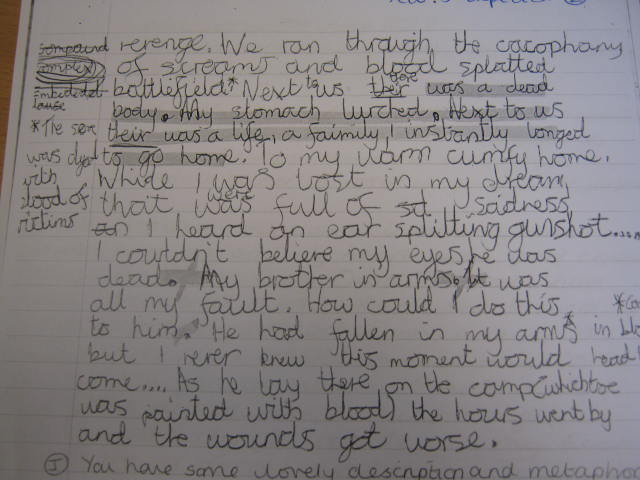 compound revenge. We ran through the cacophany
complex of screams and blood splatted
battlefield* Next to us there was a dead
imbedded clause body. My stomach lurched. Next to us
*The sea their was a life, a faimily, I instantly longed
was dyed to go home. To my warm cumfy home.
with While I was lost in my dream,
blood of that were full of sadness
victims I heard an ear splitting gunshot....
I couldn't believe my eyes, he was
dead. My brother in arms. It was
all my fault. How could I do this
to him. He had fallen in my arms in
but I never knew this moment would
come.... As he lay there on the
was painted with blood) the hours went by
and the wounds got worse.
You have some lovely description and metaphor